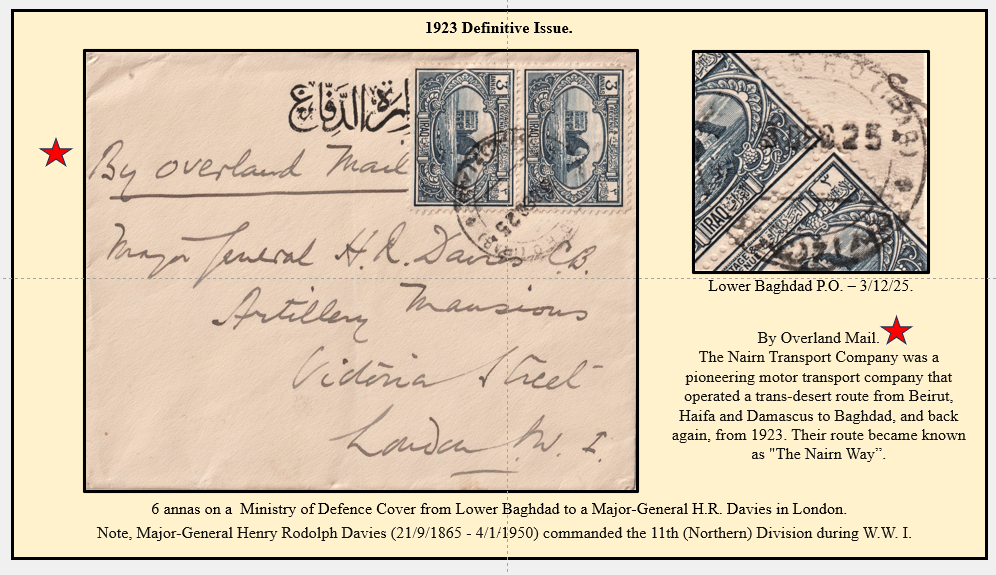 1923 Definitive Issue.
وزارة الدّفاع
By overland Mail
Major General H.R. Davies C.B.
Artillery Mansions
Victoria Street
London. W. I.
3
3
IRAQ
IRAQ
25
25
IRAQ
Lower Baghdad P.O. – 3/12/25.
By Overland Mail.
The Nairn Transport Company was a
pioneering motor transport company that
operated a trans-desert route from Beirut,
Haifa and Damascus to Baghdad, and back
again, from 1923. Their route became known
as "The Nairn Way”.
6 annas on a  Ministry of Defence Cover from Lower Baghdad to a Major-General H.R. Davies in London.
Note, Major-General Henry Rodolph Davies (21/9/1865 - 4/1/1950) commanded the 11th (Northern) Division during W.W. I.